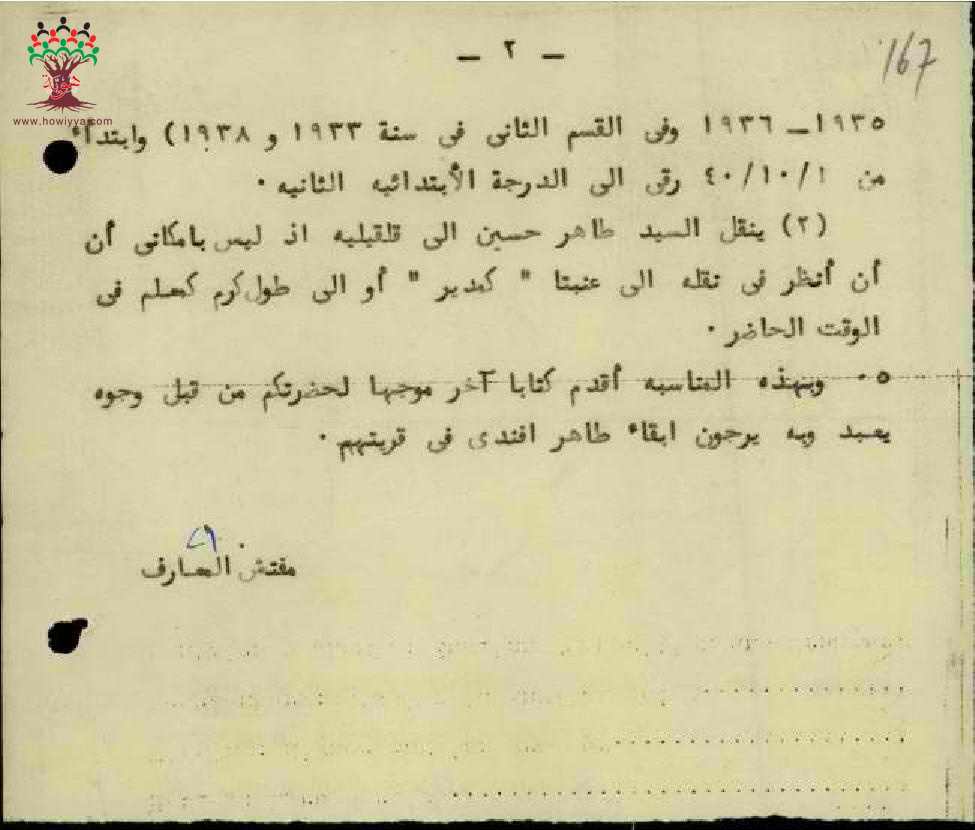 — ٢ —
167
www.howiyya.com
١٩٣٥ـ ١٩٣٦ وفى القسم الثانى فى سنة ١٩٣٣ و ١٩٣٨) وابتداء
من ٤٠/١٠/١ رقى الى الدرجة الأبتدائيه الثانيه ٠
(٢) ينقل السيد طاهر حسين الى قلقيليه اذ ليس بامكانى أن
أن أنظر فى نقله الى عنبتا " كمدير " أو الى طولكرم كمعلم فى
الوقت الحاضر ٠
٥ ٠ وبهذه المناسبه أقدم كتابا آخر موجها لحضرتكم من قبل وجوه
يعبد وبه يرجون ابقاء طاهر افندى فى قريتهم ٠
مفتش المعارف